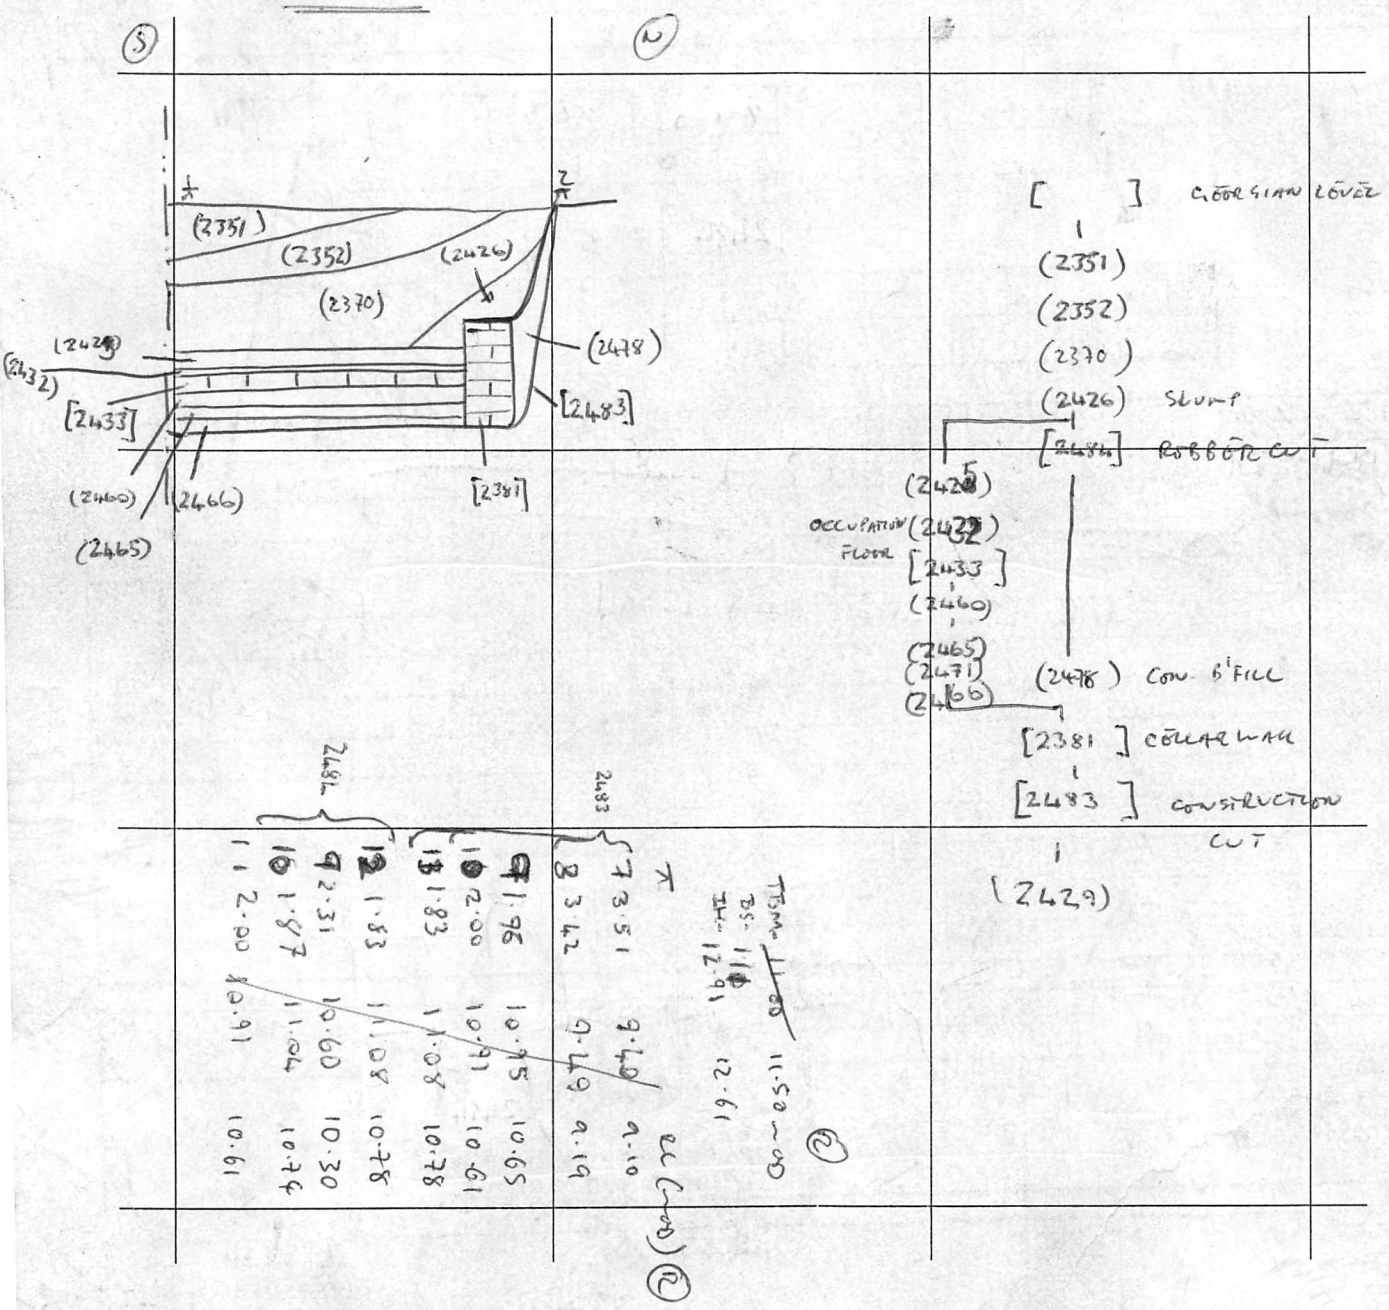 S
N
(2351)
(2352)
(2426)
(2370)
(2478)
(2432)
[2433]
[2483]
(2460)
(2466)
[2381]
(2465)
[ ] GEORGIAN LEVEL
(2351)
(2352)
(2370)
(2426) SLUMP
[2484] ROBBER CUT
(2425)
OCCUPATION (2432)
FLOOR
[2433]
(2460)
(2465)
(2471)
(2466)
(2478) CON. B'FILL
[2381] CELLAR WALL
[2483] CONSTRUCTION
CUT
(2429)
TBM- 11.80 11.50
BS- 1.11
IH- 12.91 12.61
2483
7 3.51 9.40 9.10
8 3.42 9.49 9.19
9 1.96 10.95 10.65
10 2.00 10.91 10.61
13 1.83 11.08 10.78
2484
12 1.83 11.08 10.78
9 2.31 10.60 10.30
10 1.87 11.04 10.74
11 2.00 10.91 10.61